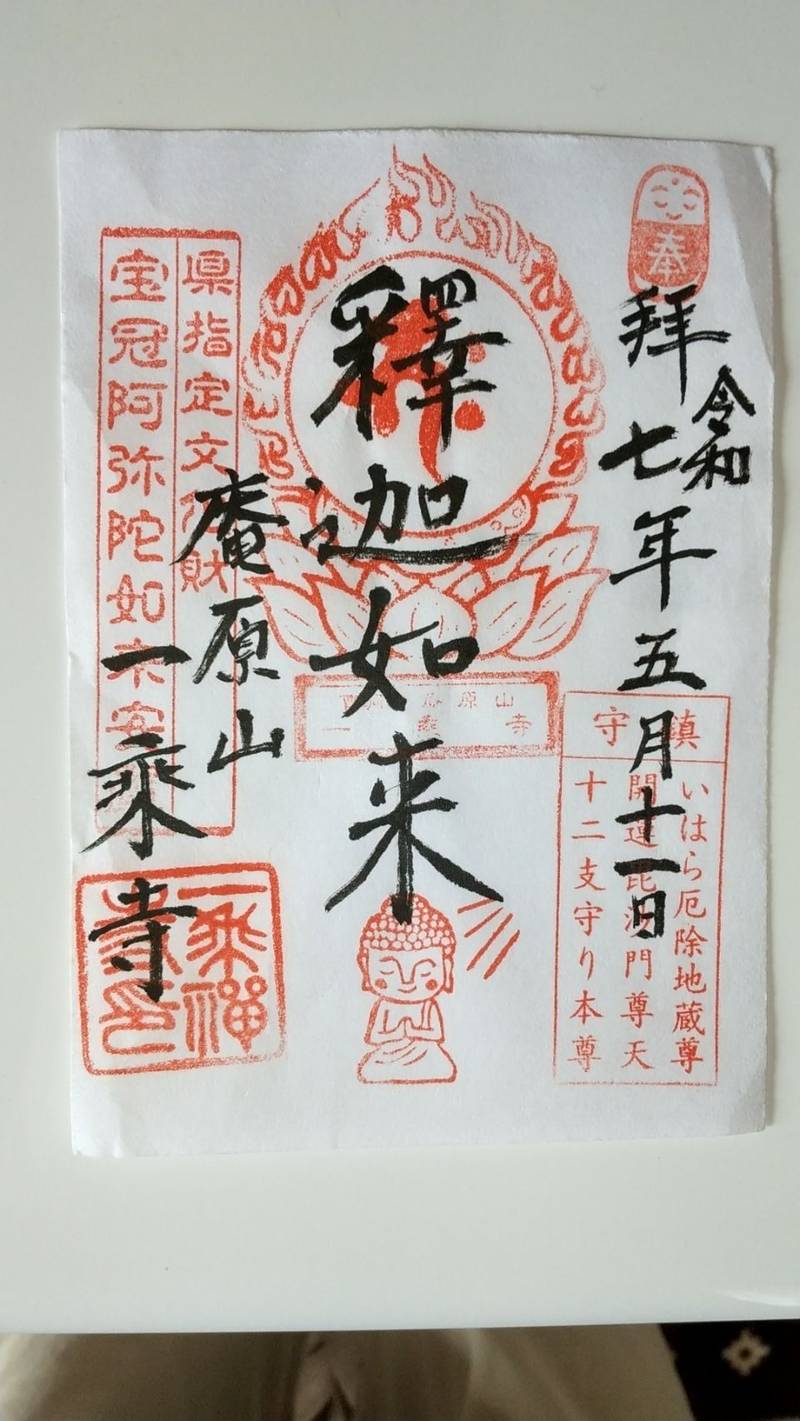 奉
拝
令和
七年五月十一日
鎮守
いはら厄除地蔵尊
開運毘沙門尊天
十二支守り本尊
釋迦如来
原山
一乘寺
庵原山
一乘寺
県指定文化財
宝冠阿弥陀如来安
一乘禅寺印